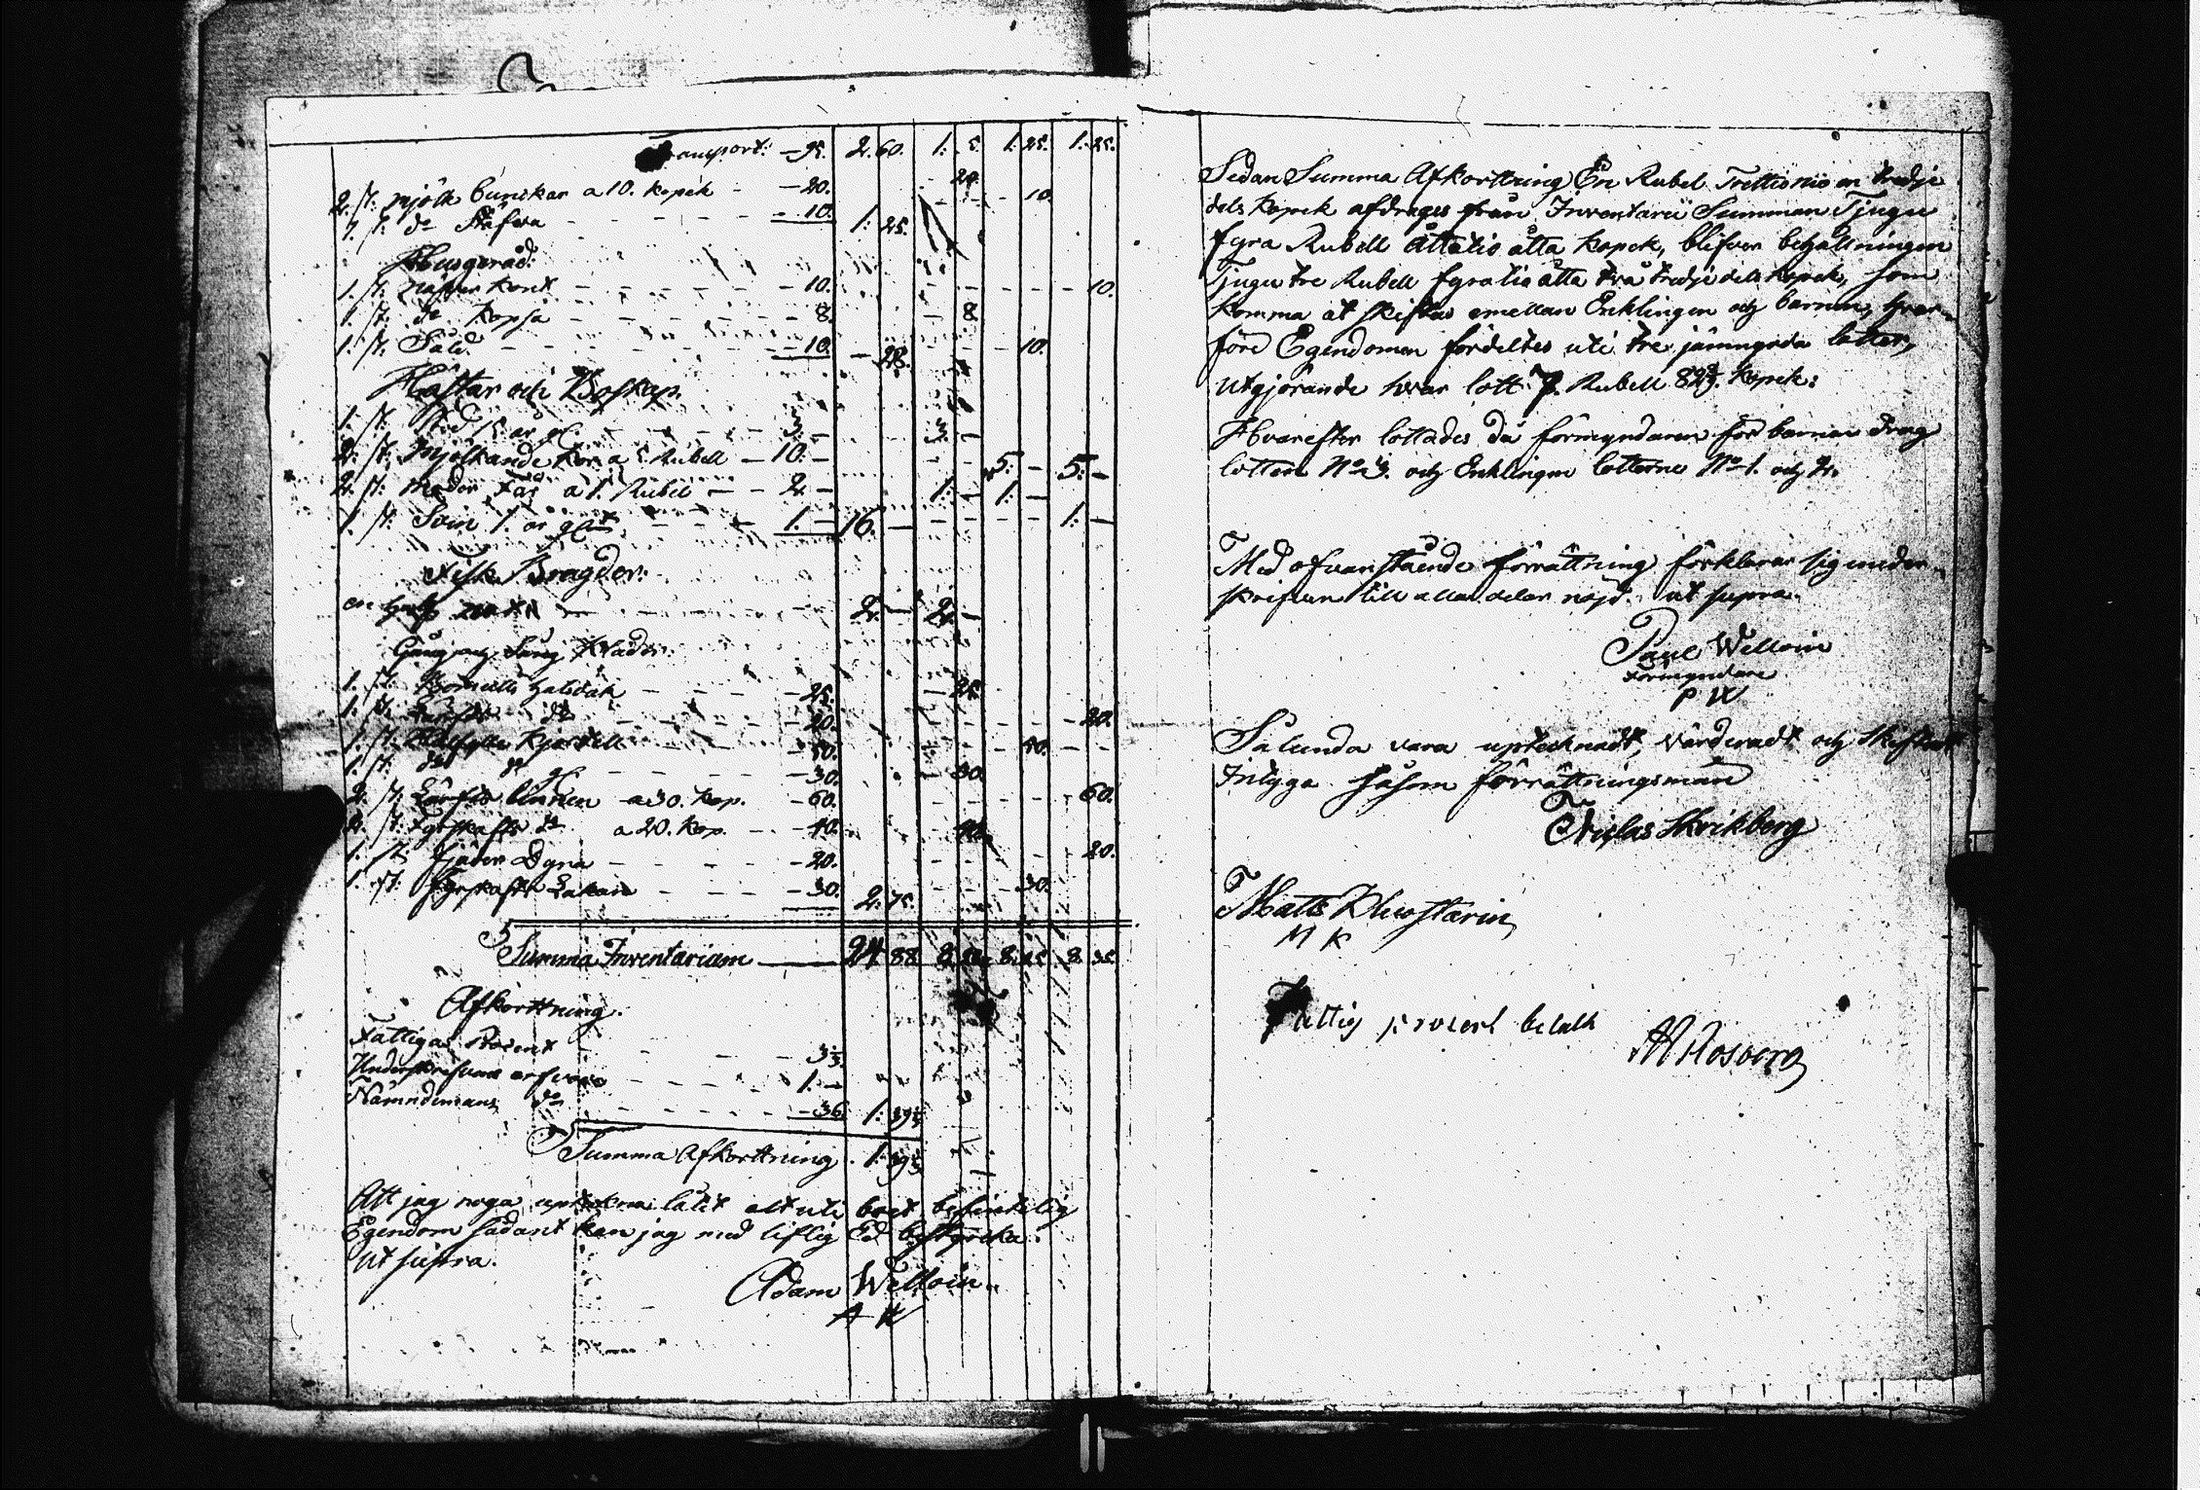 Transport: — 95. 2. 60. 1: 5. 1. 25. 1. 25.
2. st: mjölk bunckar a 10. kopek — 20. 20. 10.
1. st: do Stäfva — 10. 1: 25.
Husgeråd:
1. st: näfver kont — 10. 10.
1. st: do kopsa — 8. 8.
1. st: Såld — 10. — 28. 10.
Hästar och Boskap.
1. st. 15 år gl. 3. — 3. —
2. st. Mjölkande Kor a 5 Rubell — 10. — 5. — 5. —
2. st. moder Får a 1. Rubel — 2 — 1. — 1. —
1. st. Svin 1. år galt 1. — 16. — 1. —
Fisk Bragder.
en half not 2. — 2. —
Gång och Säng Kläder.
1. st. Bomulls halsduk — 25. 25.
1. st. Lärfts do — 20. 20.
1. st. Halfylle kjortell — 50. 50.
1. st. do do gl. — 30. 30.
2. st. Lärfts linnen a 30. kop. — 60. 60.
2. st. Fyrskaffts do a 20. kop. — 40. 40.
1. st. Fjäder Dyna — 20. 20.
1. st. Fyrskafts Lakan — 30. 2. 75. 30.
Summa Inventarium — 24 88 8. 8. 25. 8. 35.
Afkorttning.
Fattiga Procent 3⅓
Underskrifvare arfvode 1. —
Nämndemans do — 36. 1. 39⅓
Summa Afkorttning 1. 39⅓
Att jag noga upteckna låtit alt uti boet befintelig
Egendom sådant kan jag med liflig Ed bestyrcka.
Ut supra.
Adam Welloin
A W
Sedan Summa Afkorttning En Rubel Trettionio en tredje
dels kopek afdrages från Inventarii Summan Tjugu
fyra Rubell Åttatio åtta kopek, blifver behållningen
Tjugu tre Rubell fyratio åtta två tredje dels kopek, som
komma at skiftas emellan Enklingen och barnen, hvar-
före Egendomen fördeltes uti tre jämngoda lotter,
utgjörande hvar lott 7. Rubell 82⅔. kopek:
Hvarefter lottades då förmyndaren för barnen drog
lotten No 3. och Enklingen lotterne No 1. och 2.
Med ofvanstående förrättning förklarar sig under-
skrifven till alla delar nöjd. ut supra.
Paul Welloin
Förmyndare
P W
Sålunda vara uptecknadt, Värderadt och Skiftadt
Intyga såsom förrättningsmän
Niclas Skrikberg
Matts
M K
Fattig procent betalt
Rosberg